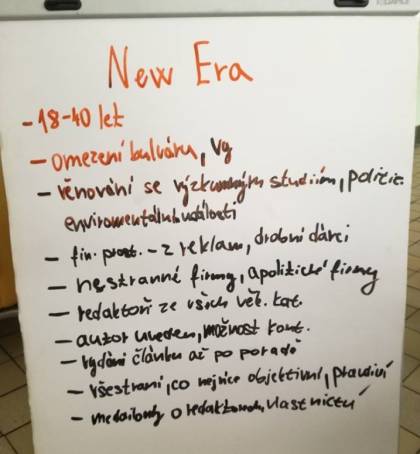 New Era
- 18-40 let
- omezení bulváru, vg
- věnování se výzkumným studiím, politic.
enviromentální události
- fin. prost. - z reklam, drobní dárci
- nestranné firmy, apolitické firmy
- redaktoři ze všech věk. kat.
- autor uveden, možnost kont.
- vydání článku až po poradě
- všestraní, co nejvíce objektivní, pravdiví
- medailonky o redaktorech, vlastnictví